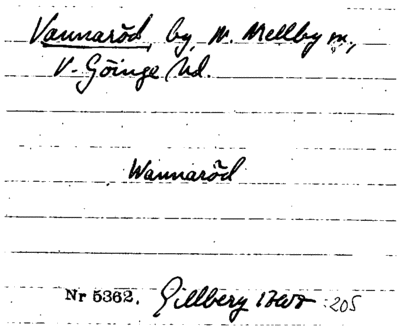 Vannaröd, by, N. Mellby sn,
V. Göinge hd.
Wannaröd
Nr 5362. Gillberg :205